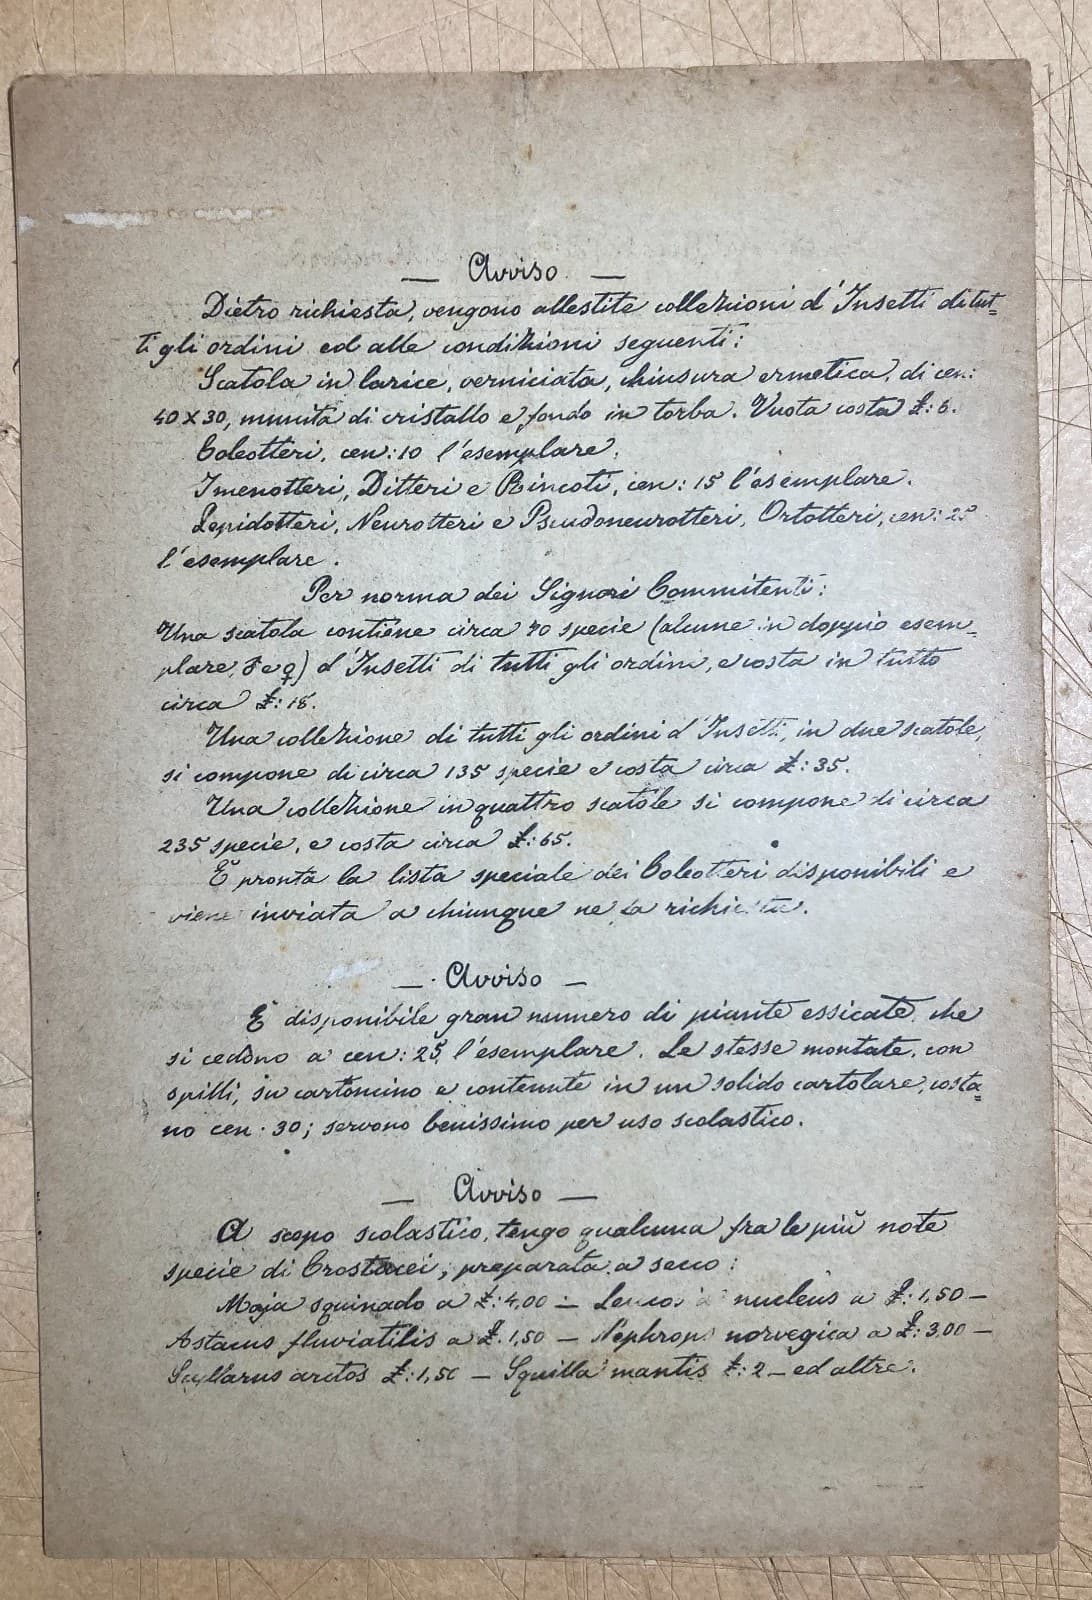 — Avviso. —
Dietro richiesta, vengono allestite collezioni d'Insetti di tut=
ti gli ordini ed alle condizioni seguenti:
Scatola in larice, verniciata, chiusura ermetica, di cen:
40 x 30, munita di cristallo e fondo in torba. Vuota costa £: 6.
Coleotteri, cen: 10 l'esemplare.
Imenotteri, Ditteri e Rincoti, cen: 15 l'esemplare.
Lepidotteri, Neurotteri e Pseudoneurotteri, Ortotteri, cen: 25
l'esemplare.
Per norma dei Signori Committenti:
Una scatola contiene circa 70 specie (alcune in doppio esem=
plare, ♂ e ♀) d'Insetti di tutti gli ordini, e costa in tutto
circa £: 18.
Una collezione di tutti gli ordini d'Insetti, in due scatole,
si compone di circa 135 specie e costa circa £: 35.
Una collezione in quattro scatole si compone di circa
235 specie, e costa circa £: 65.
È pronta la lista speciale dei Coleotteri disponibili e
viene inviata a chiunque ne fa richiesta.
— Avviso —
È disponibile gran numero di piante essicate, che
si cedono a cen: 25 l'esemplare. Le stesse montate, con
spilli, su cartoncino e contenute in un solido cartolare, costa=
no cen. 30; servono benissimo per uso scolastico.
— Avviso —
A scopo scolastico, tengo qualcuna fra le più note
specie di Crostacei, preparata a secco:
Maja squinado a £: 4,00 — Leucosia nucleus a £: 1,50 —
Astacus fluviatilis a £. 1,50 — Nephrops norvegica a £: 3,00 —
Scyllarus arctos £: 1,50 — Squilla mantis £: 2 — ed altre.